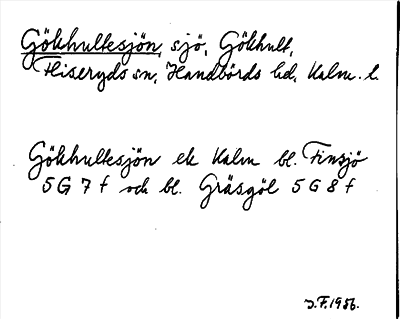 Gökhultesjön, sjö, Gökhult,
Fliseryds sn, Handbörds hd, Kalm. l.
Gökhultesjön ek Kalm bl. Finsjö
5 G 7 f och bl. Gräsgöl 5 G 8 f
J.F. 1956.